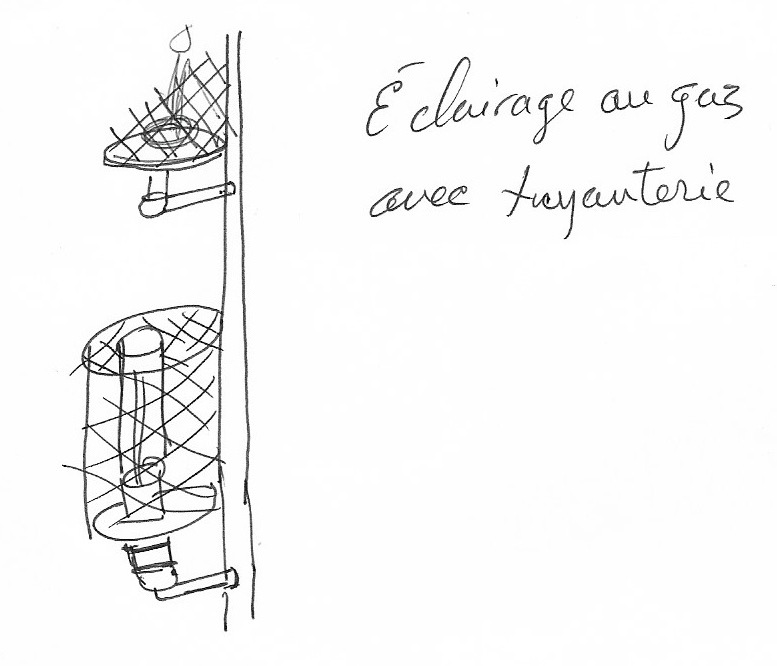 Éclairage au gaz
avec tuyauterie